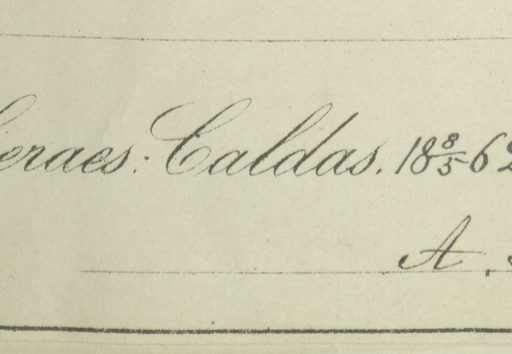 eraes: Caldas. 18 8/5 6
A.